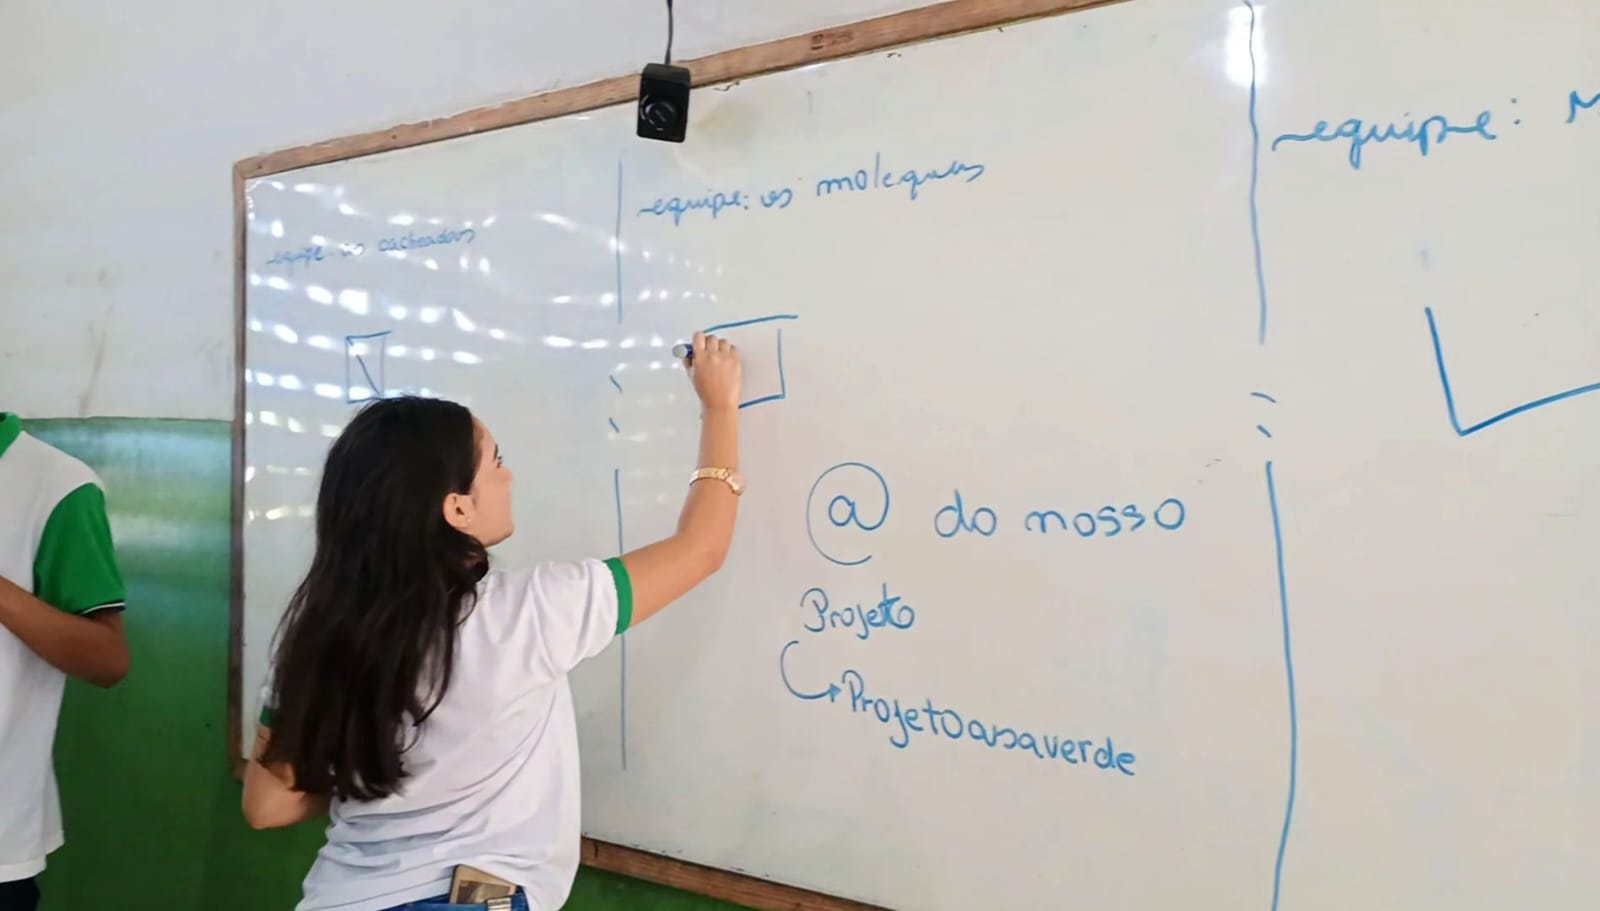 equipe os cacheados
equipe: os moleques
equipe:
@ do nosso
Projeto
Projetoasaverde